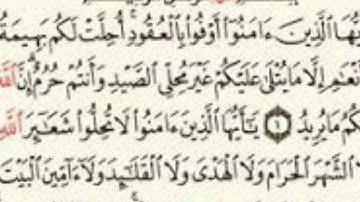 يُّهَا ٱلَّذِينَ ءَامَنُوٓا۟ أَوْفُوا۟ بِٱلْعُقُودِ ۚ أُحِلَّتْ لَكُم بَهِيمَةُ
لْأَنْعَٰمِ إِلَّا مَا يُتْلَىٰ عَلَيْكُمْ غَيْرَ مُحِلِّى ٱلصَّيْدِ وَأَنتُمْ حُرُمٌ ۗ إِنَّ ٱللَّهَ
كُمُ مَا يُرِيدُ ١ يَٰٓأَيُّهَا ٱلَّذِينَ ءَامَنُوا۟ لَا تُحِلُّوا۟ شَعَٰٓئِرَ ٱللَّهِ
ا ٱلشَّهْرَ ٱلْحَرَامَ وَلَا ٱلْهَدْىَ وَلَا ٱلْقَلَٰٓئِدَ وَلَآ ءَآمِّينَ ٱلْبَيْتَ